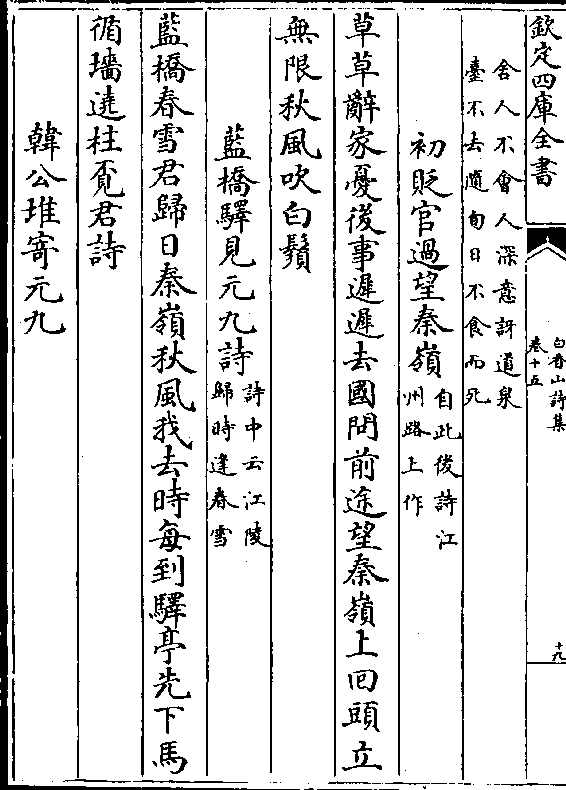 欽定四庫全書
白香山詩集
卷十五
十九
舍人不會人深意訝道泉
臺不去隨旬日不食而死
初貶官過望秦嶺
自此後詩江
州路上作
草草辭家憂後事遲遲去國問前途望秦嶺上回頭立
無限秋風吹白鬚
藍橋驛見元九詩
詩中云江陵
歸時逢春雪
藍橋春雪君歸日秦嶺秋風我去時每到驛亭先下馬
循墻遶柱覔君詩
韓公堆寄元九